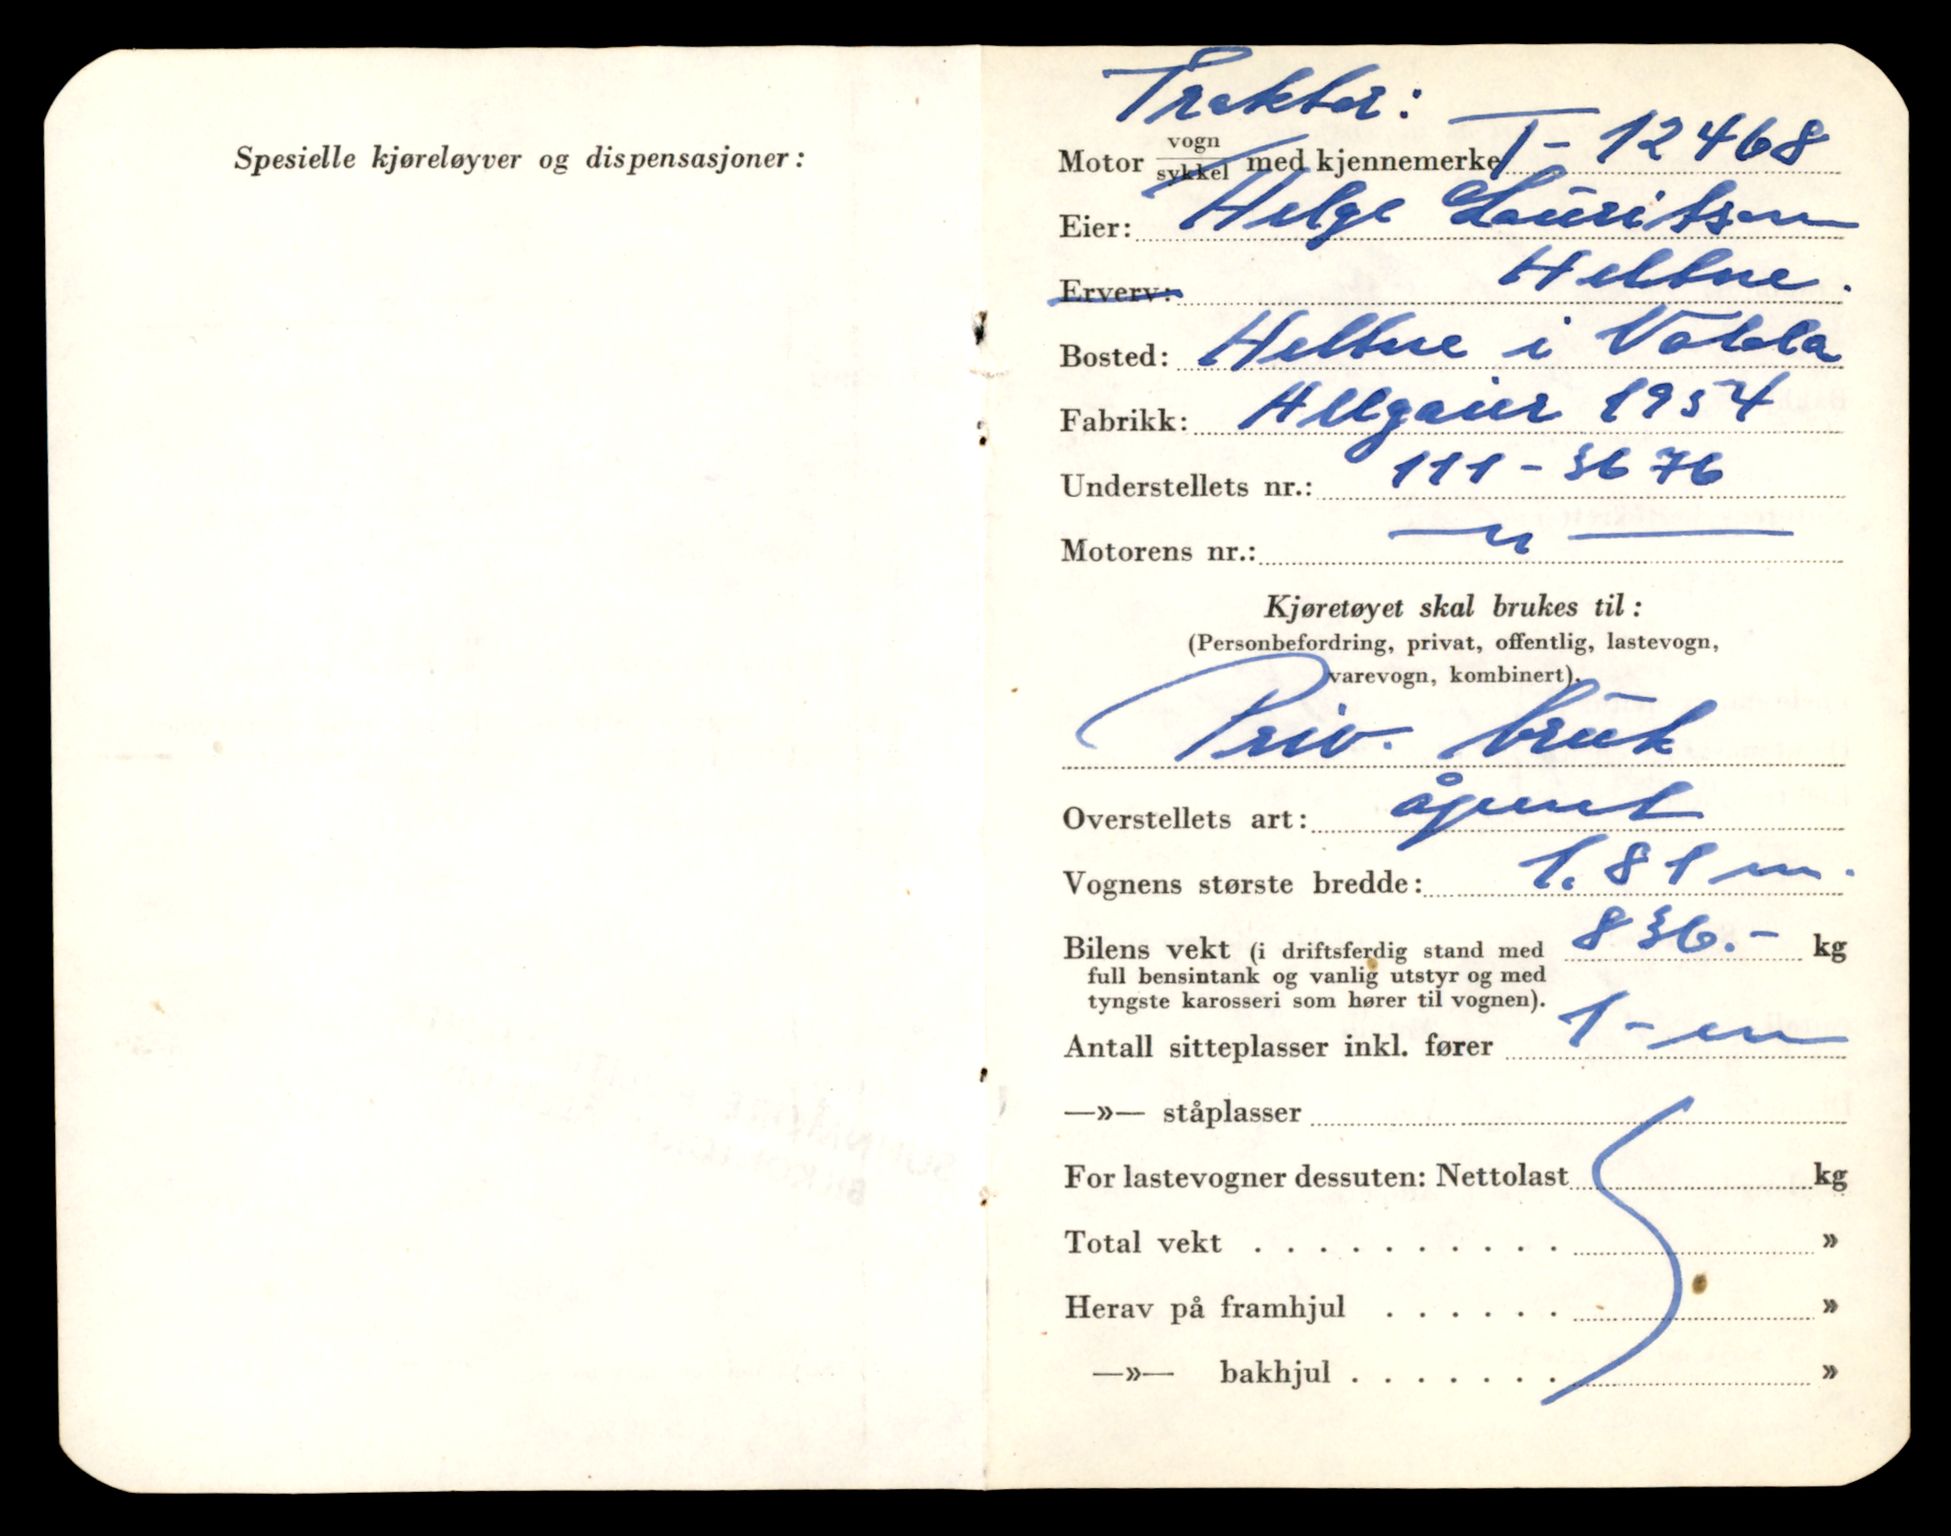 Spesielle kjøreløyver og dispensasjoner:
Traktor:
Motor vogn/sykkel med kjennemerke T-12468
Eier: Helge Lauritsen
Erverv: Heltne.
Bosted: Heltne i Volda
Fabrikk: Allgaier 1954
Understellets nr.: 111-3676
Motorens nr.: — " —
Kjøretøyet skal brukes til:
(Personbefordring, privat, offentlig, lastevogn,
varevogn, kombinert).
Priv. bruk
Overstellets art: åpent
Vognens største bredde: 1.81 m.
Bilens vekt (i driftsferdig stand med 836.- kg
full bensintank og vanlig utstyr og med
tyngste karosseri som hører til vognen).
Antall sitteplasser inkl. fører 1-en
—»— ståplasser
For lastevogner dessuten: Nettolast kg
Total vekt . . . . . . . . . . »
Herav på framhjul . . . . . . »
—»— bakhjul . . . . . . . »